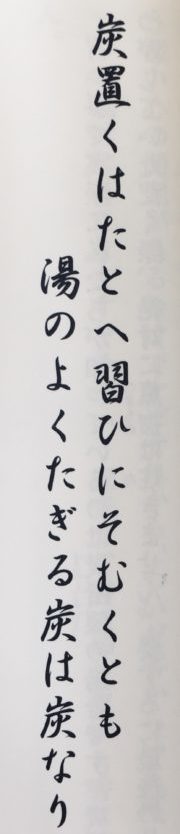 炭置くはたとへ習ひにそむくとも
湯のよくたぎる炭は炭なり